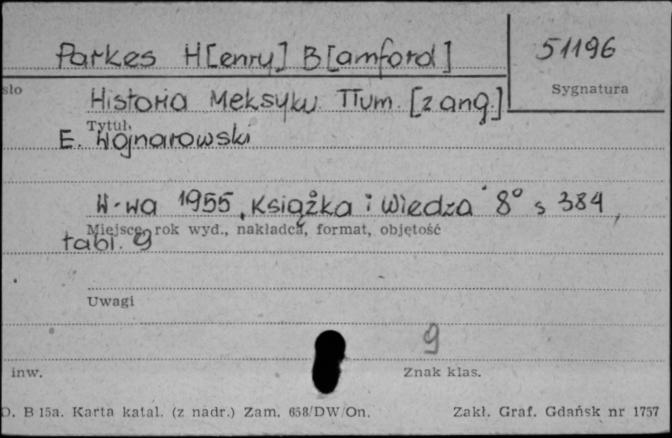 Parkes H[enry] B[amford]
51196
sło
Sygnatura
Historia Meksyku. Tłum. [z ang.]
Tytuł
E. Wojnarowski
W-wa 1955 "Książka i Wiedza" 8° s 384,
Miejsce, rok wyd., nakładca, format, objętość
tabl. 9
Uwagi
9
inw.
Znak klas.
D. B 15a. Karta katal. (z nadr.) Zam. 658/DW/On.
Zakł. Graf. Gdańsk nr 1757